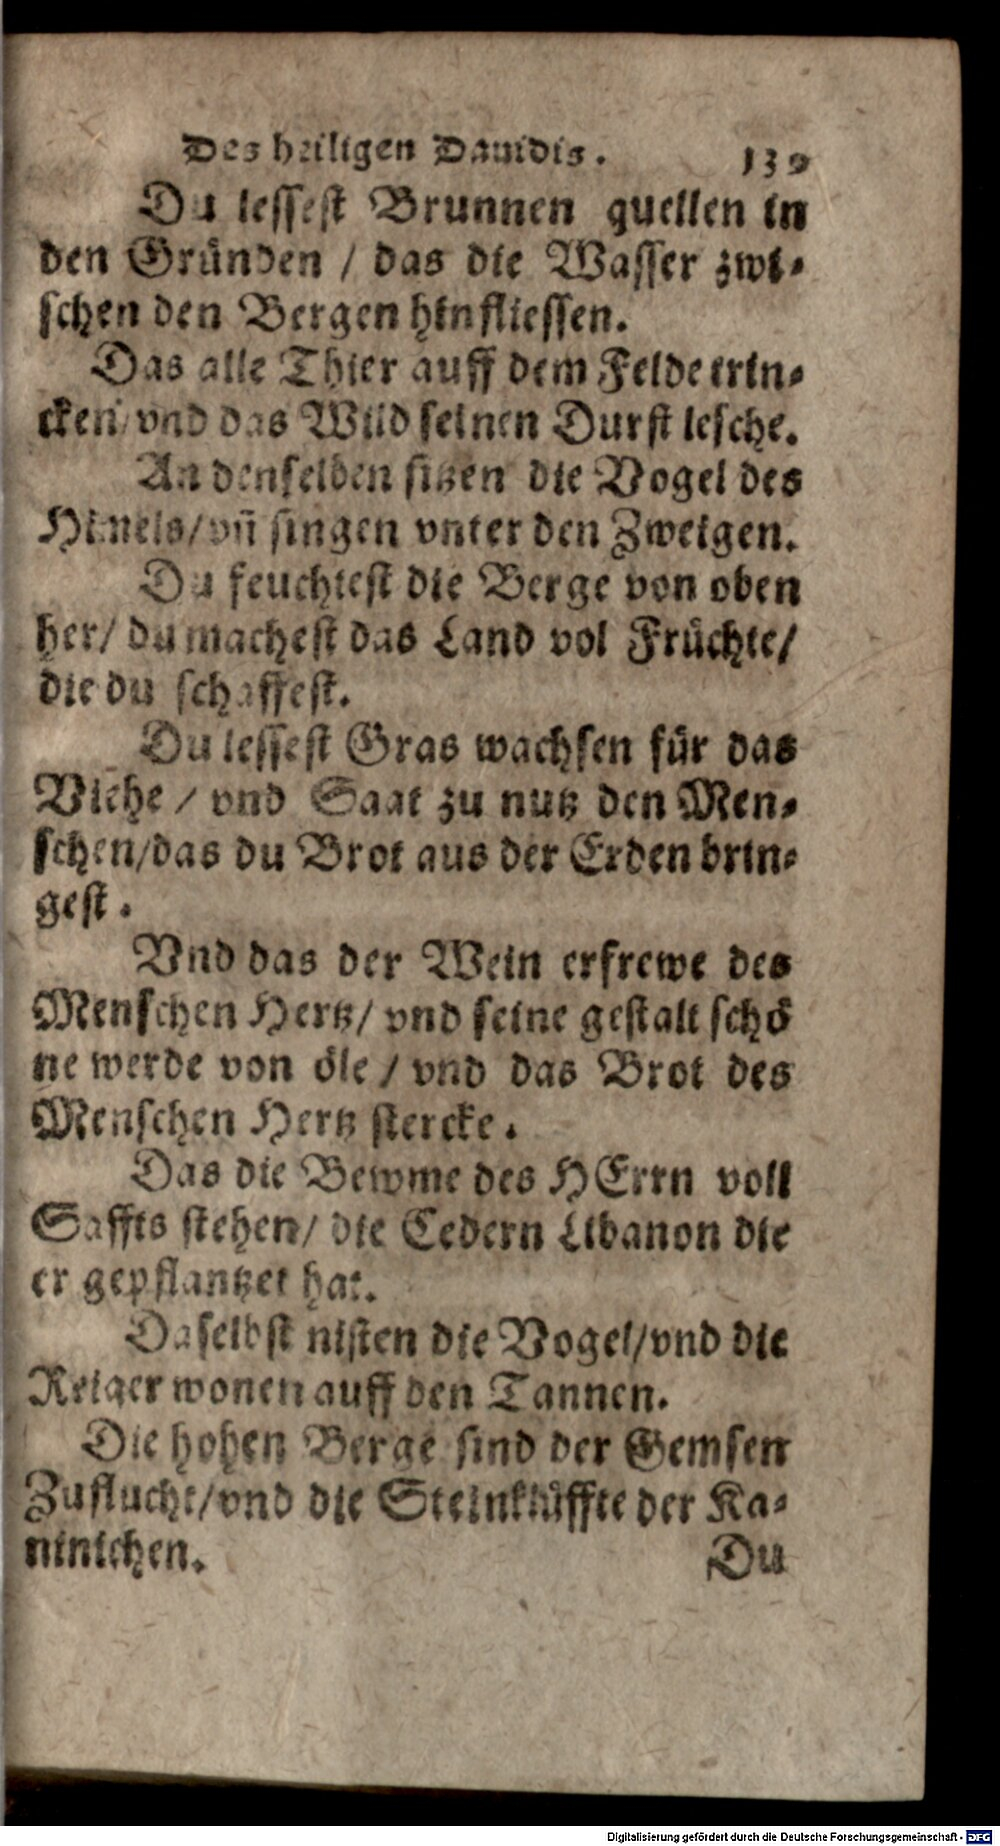 Des heiligen Dauidis. 139
Du lessest Brunnen quellen in
den Gründen / das die Wasser zwi-
schen den Bergen hinfliessen.
Das alle Thier auff dem Felde trin-
cken/ vnd das Wild seinen Durst lesche.
An denselben sitzen die Vogel des
Himels/ vñ singen vnter den Zweigen.
Du feuchtest die Berge von oben
her/ du machest das Land vol Früchte/
die du schaffest.
Du lessest Gras wachsen für das
Viehe / vnd Saat zu nutz den Men-
schen/das du Brot aus der Erden brin-
gest.
Vnd das der Wein erfrewe des
Menschen Hertz/ vnd seine gestalt schö
ne werde von öle / vnd das Brot des
Menschen Hertz stercke.
Das die Bewme des HErrn voll
Saffts stehen/ die Cedern Libanon die
er gepflantzet hat.
Daselbst nisten die Vogel/vnd die
Reiger wonen auff den Tannen.
Die hohen Berge sind der Gemsen
Zuflucht/vnd die Steinklüffte der Ka-
ninichen. Du
Digitalisierung gefördert durch die Deutsche Forschungsgemeinschaft - DFG